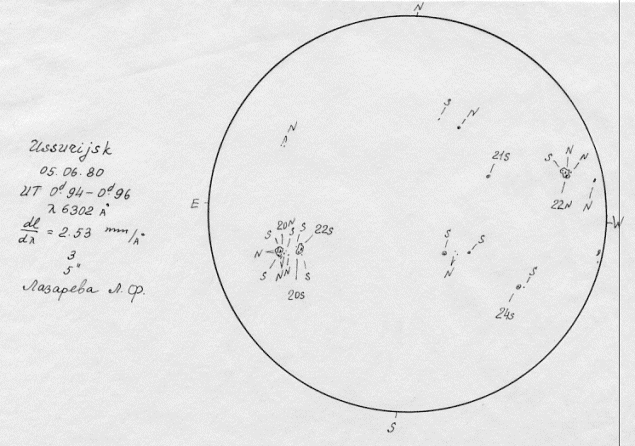 N
Ussurijsk
05.06.80
UT 0ᵈ.94–0ᵈ.96
λ 6302 Å
dl/dλ = 2.53 mm/Å
3
5"
Лазарева Л.Ф.
E
W
S
S N
N
21S
S N N
22N
N
20N
S S S 22S
N
S N N S
20S
S S
N
S
24S